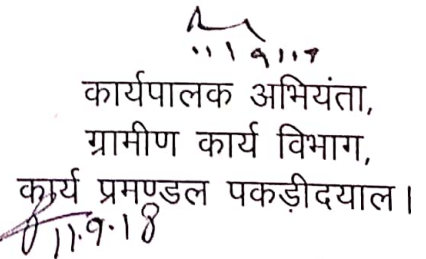 11.9.18
कार्यपालक अभियंता,
ग्रामीण कार्य विभाग,
कार्य प्रमण्डल पकड़ीदयाल।
11.9.18